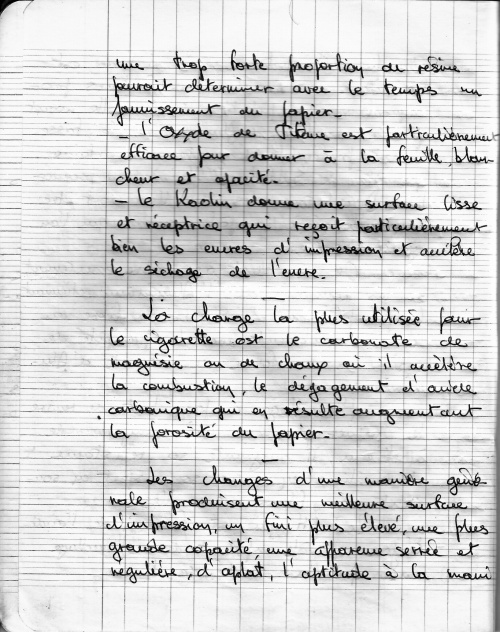 une trop forte proportion de résine
pourrait déterminer avec le temps un
jaunissement du papier.
- l'Oxyde de Titane est particulièrement
efficace pour donner à la feuille, blan-
cheur et opacité.
- le Kaolin donne une surface lisse
et réceptrice qui reçoit particulièrement
bien les encres d'impression et accélère
le séchage de l'encre.
La charge la plus utilisée pour
le cigarette est le carbonate de
magnésie ou de chaux où il accélère
la combustion, le dégagement d'acide
carbonique qui en résulte augmentant
la porosité du papier.
Les charges d'une manière géné-
rale produisent une meilleure surface
d'impression, un fini plus élevé, une plus
grande opacité, une apparence serrée et
régulière, d'aplat, l'aptitude à la mani